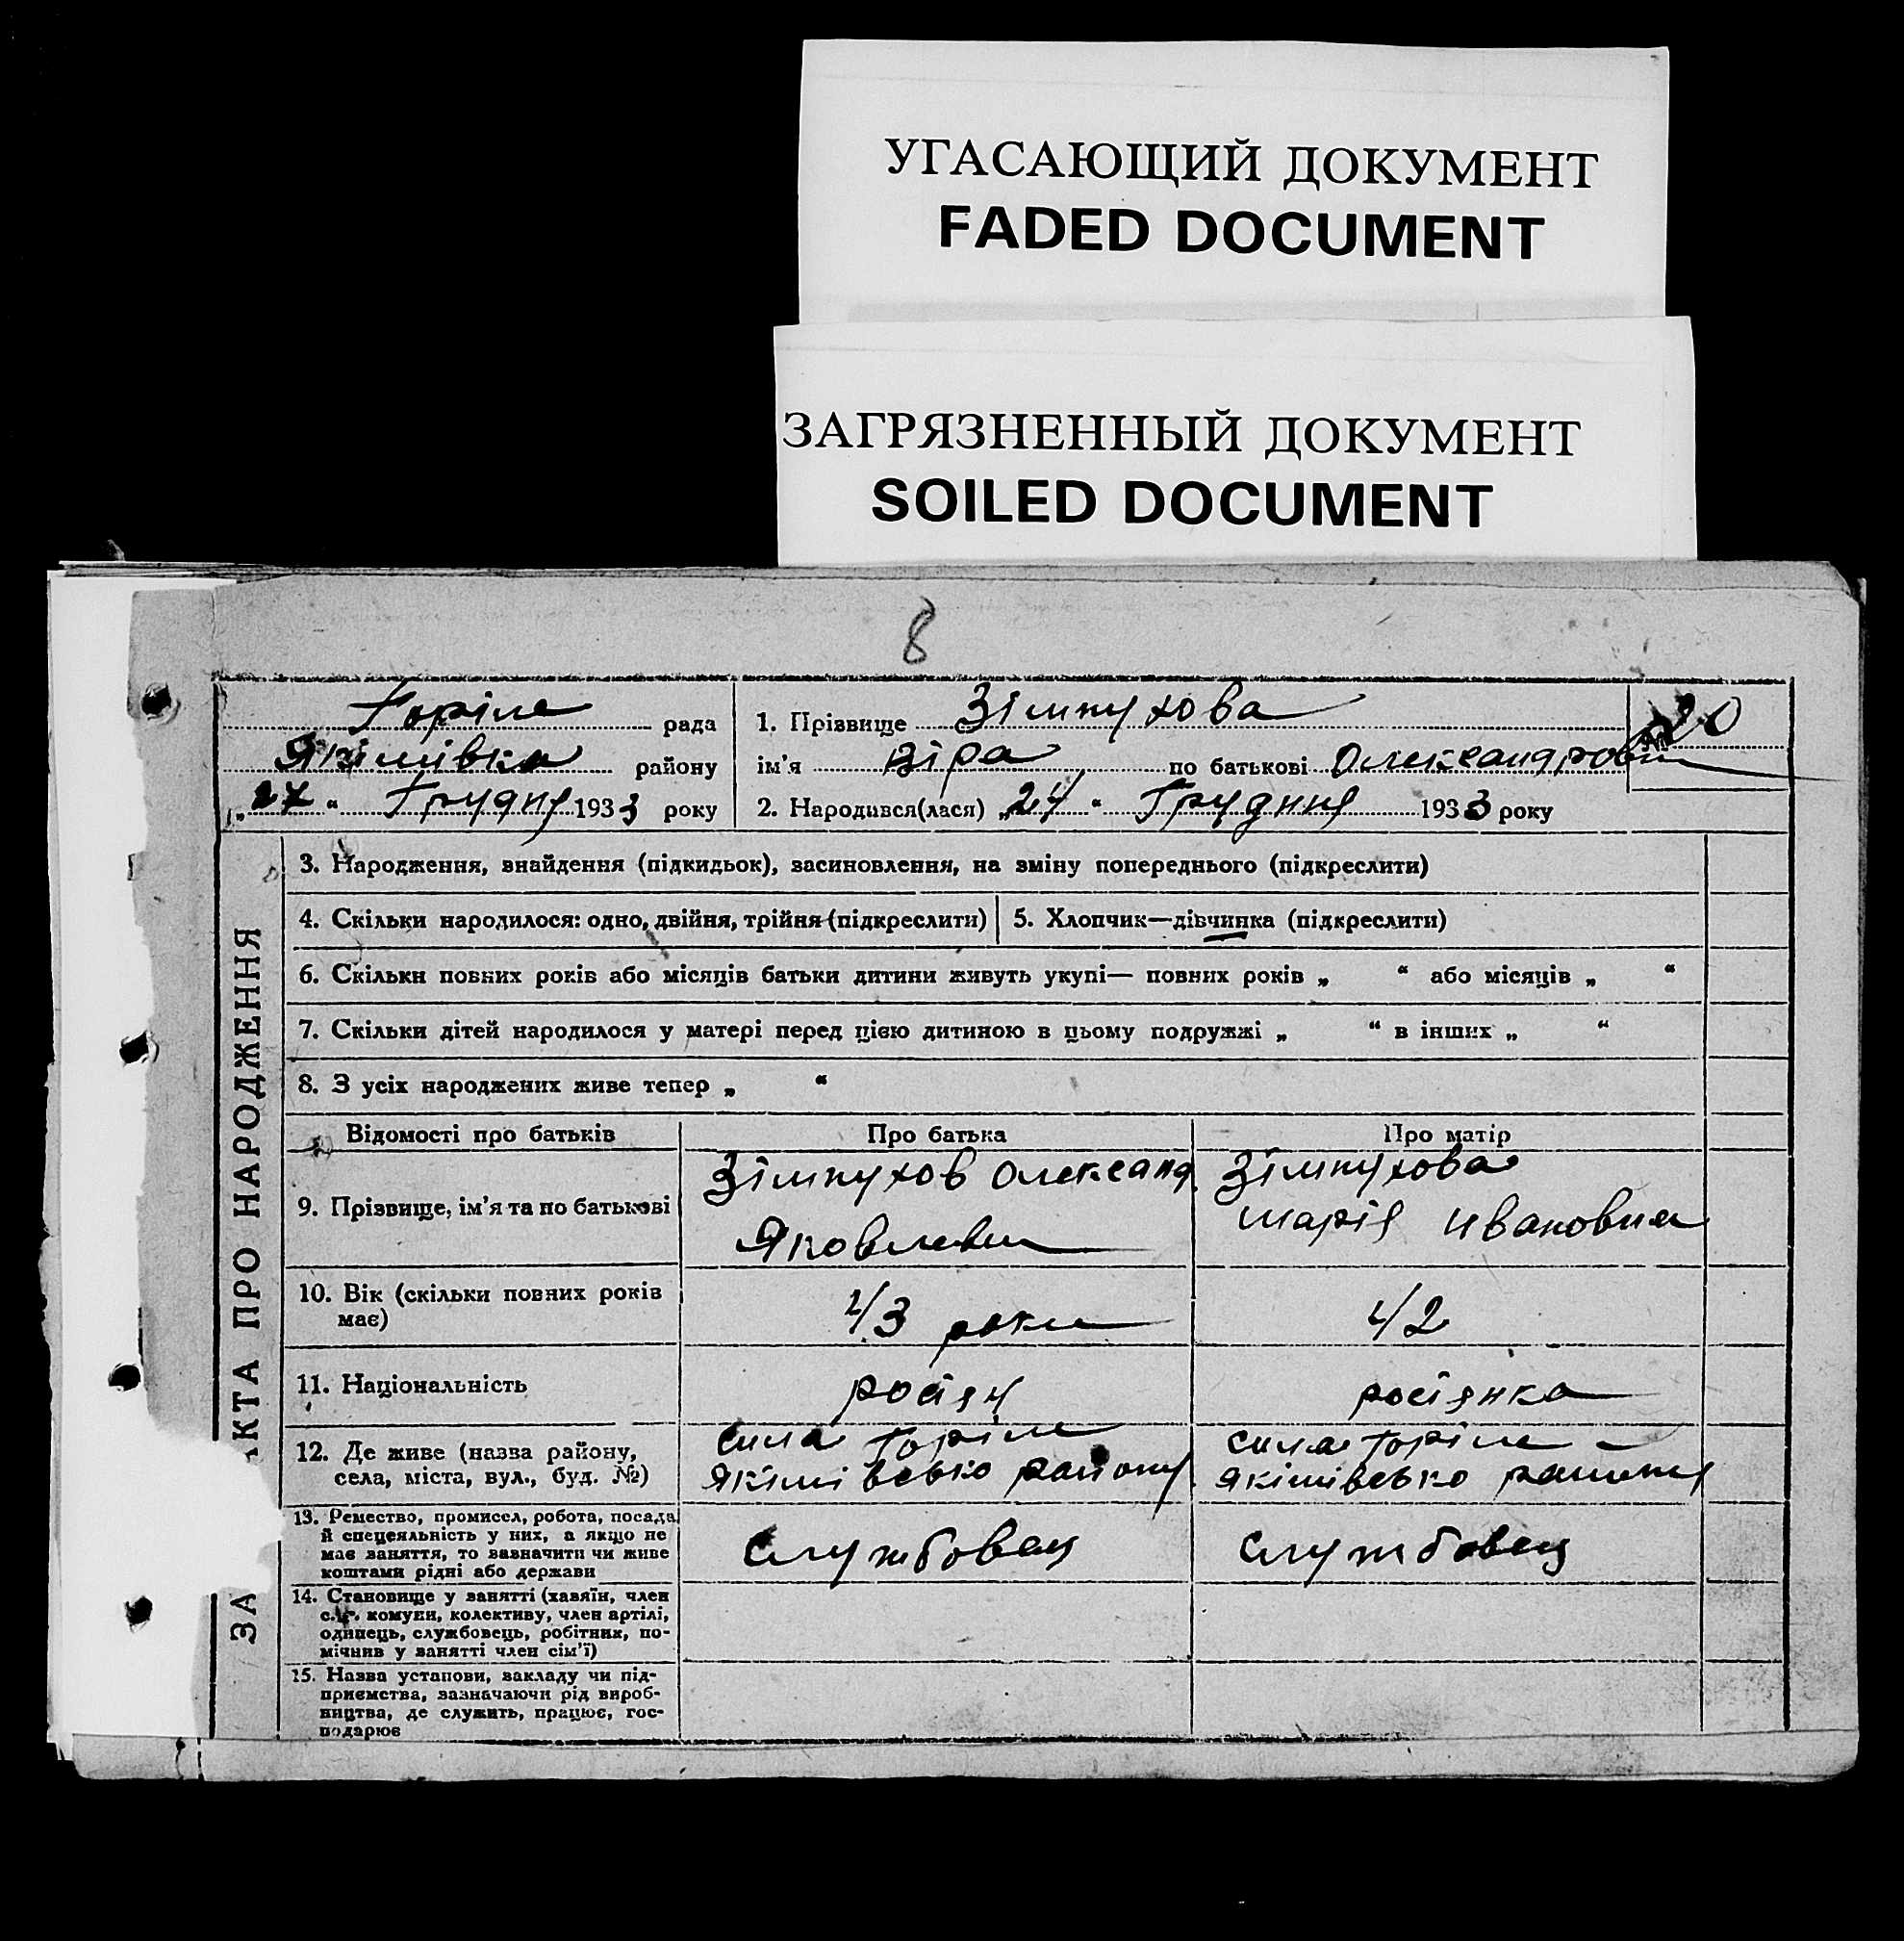 УГАСАЮЩИЙ ДОКУМЕНТ
FADED DOCUMENT
ЗАГРЯЗНЕННЫЙ ДОКУМЕНТ
SOILED DOCUMENT
8
Горіле рада
Якімівка району
„27“ Грудня 1933 року
1. Прізвище Зімпухова
ім'я Віра по батькові Олександровна
20
2. Народився(лася) „24“ Грудня 1933 року
ЗА АКТА ПРО НАРОДЖЕННЯ
3. Народження, знайдення (підкидьок), засиновлення, на зміну попереднього (підкреслити)
4. Скільки народилося: одно, двійня, трійня (підкреслити) 5. Хлопчик—дівчинка (підкреслити)
6. Скільки повних років або місяців батьки дитини живуть укупі— повних років „ “ або місяців „ “
7. Скільки дітей народилося у матері перед цією дитиною в цьому подружжі „ “ в інших „ “
8. З усіх народжених живе тепер „ “
Відомості про батьків Про батька Про матір
9. Прізвище, ім'я та по батькові
Зімпухов Олександ.
Яковлевич
Зімпухова
Марія Ивановна
10. Вік (скільки повних років
має)
43 роки
42
11. Національність
росіян
росіянка
12. Де живе (назва району,
села, міста, вул., буд. №)
села Горіле
Якімівсько району.
села Горіле
Якімівсько району
13. Ремество, промисел, робота, посада
й спецеяльність у них, а якщо не
має заняття, то вазначити чи живе
коштами рідні або держави
Службовец
Службовец
14. Становище у занятті (хазяїн, член
с.-г. комуни, колективу, член артілі,
одинець, службовець, робітник, по-
мічнив у занятті член сім'ї)
15. Назва установи, закладу чи під-
приємства, зазначаючи рід вироб-
ництва, де служить, працює, гос-
подарює